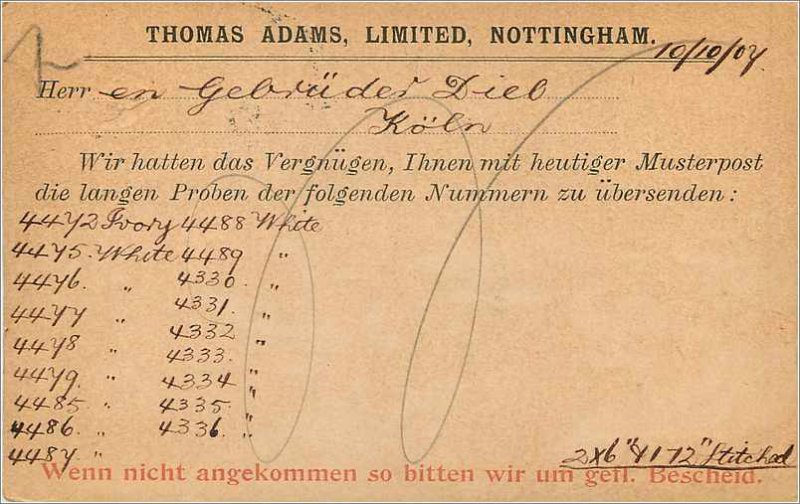 THOMAS ADAMS, LIMITED, NOTTINGHAM.
10/10/07.
Herr en Gebrüder Dieb
Köln
Wir hatten das Vergnügen, Ihnen mit heutiger Musterpost
die langen Proben der folgenden Nummern zu übersenden:
4472 Ivory 4488 White
4475. White 4489 "
4476. " 4330. "
4477 " 4331. "
4478 " 4332 "
4479. " 4333. "
4485 " 4334 "
4486. " 4335. "
4487 " 4336. "
2x6" 12" Stitched
Wenn nicht angekommen so bitten wir um gefl. Bescheid.